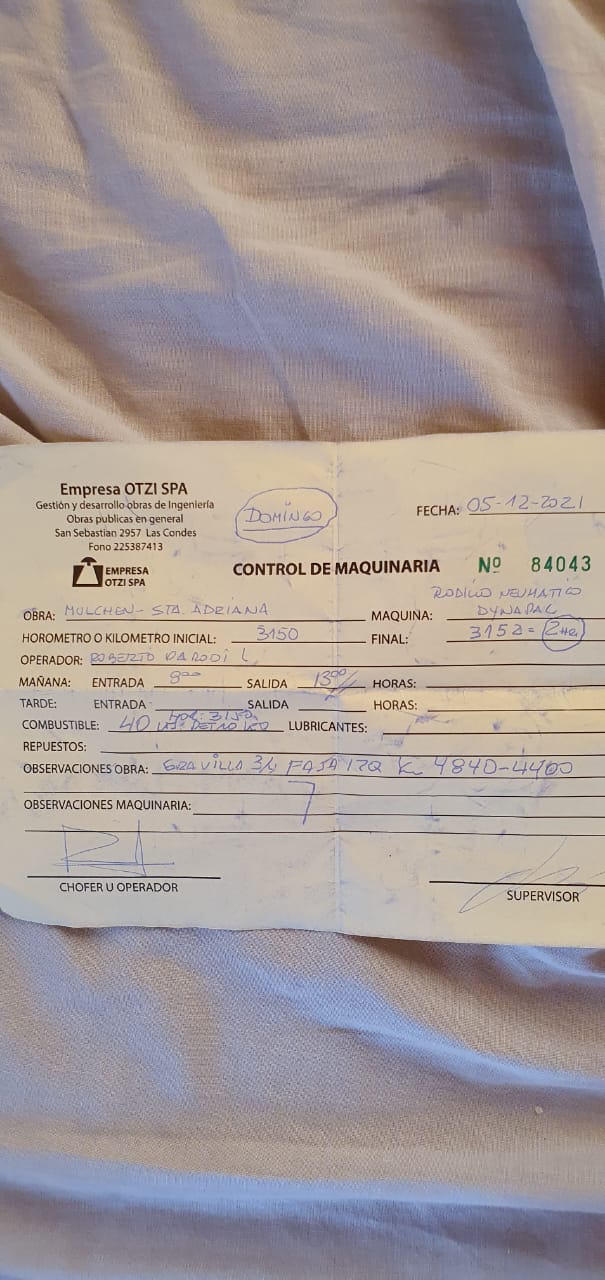 Empresa OTZI SPA
Gestión y desarrollo obras de Ingeniería
Obras publicas en general
San Sebastian 2957 Las Condes
Fono 225387413
EMPRESA
OTZI SPA
DOMINGO
FECHA: 05-12-2021
CONTROL DE MAQUINARIA Nº 84043
RODILLO NEUMATICO
OBRA: MULCHEN - STA. ADRIANA MAQUINA: DYNAPAC
HOROMETRO O KILOMETRO INICIAL: 3150 FINAL: 3152 =
OPERADOR: ROBERTO PARODI L
MAÑANA: ENTRADA 8⁰⁰ SALIDA 13⁰⁰ HORAS:
TARDE: ENTRADA SALIDA HORAS:
HOR: 3150
COMBUSTIBLE: 40 LTS. PETROLEO LUBRICANTES:
REPUESTOS:
OBSERVACIONES OBRA: GRAVILLA 3/4 FAJA IZQ K 4840-4400
OBSERVACIONES MAQUINARIA:
CHOFER U OPERADOR
SUPERVISOR